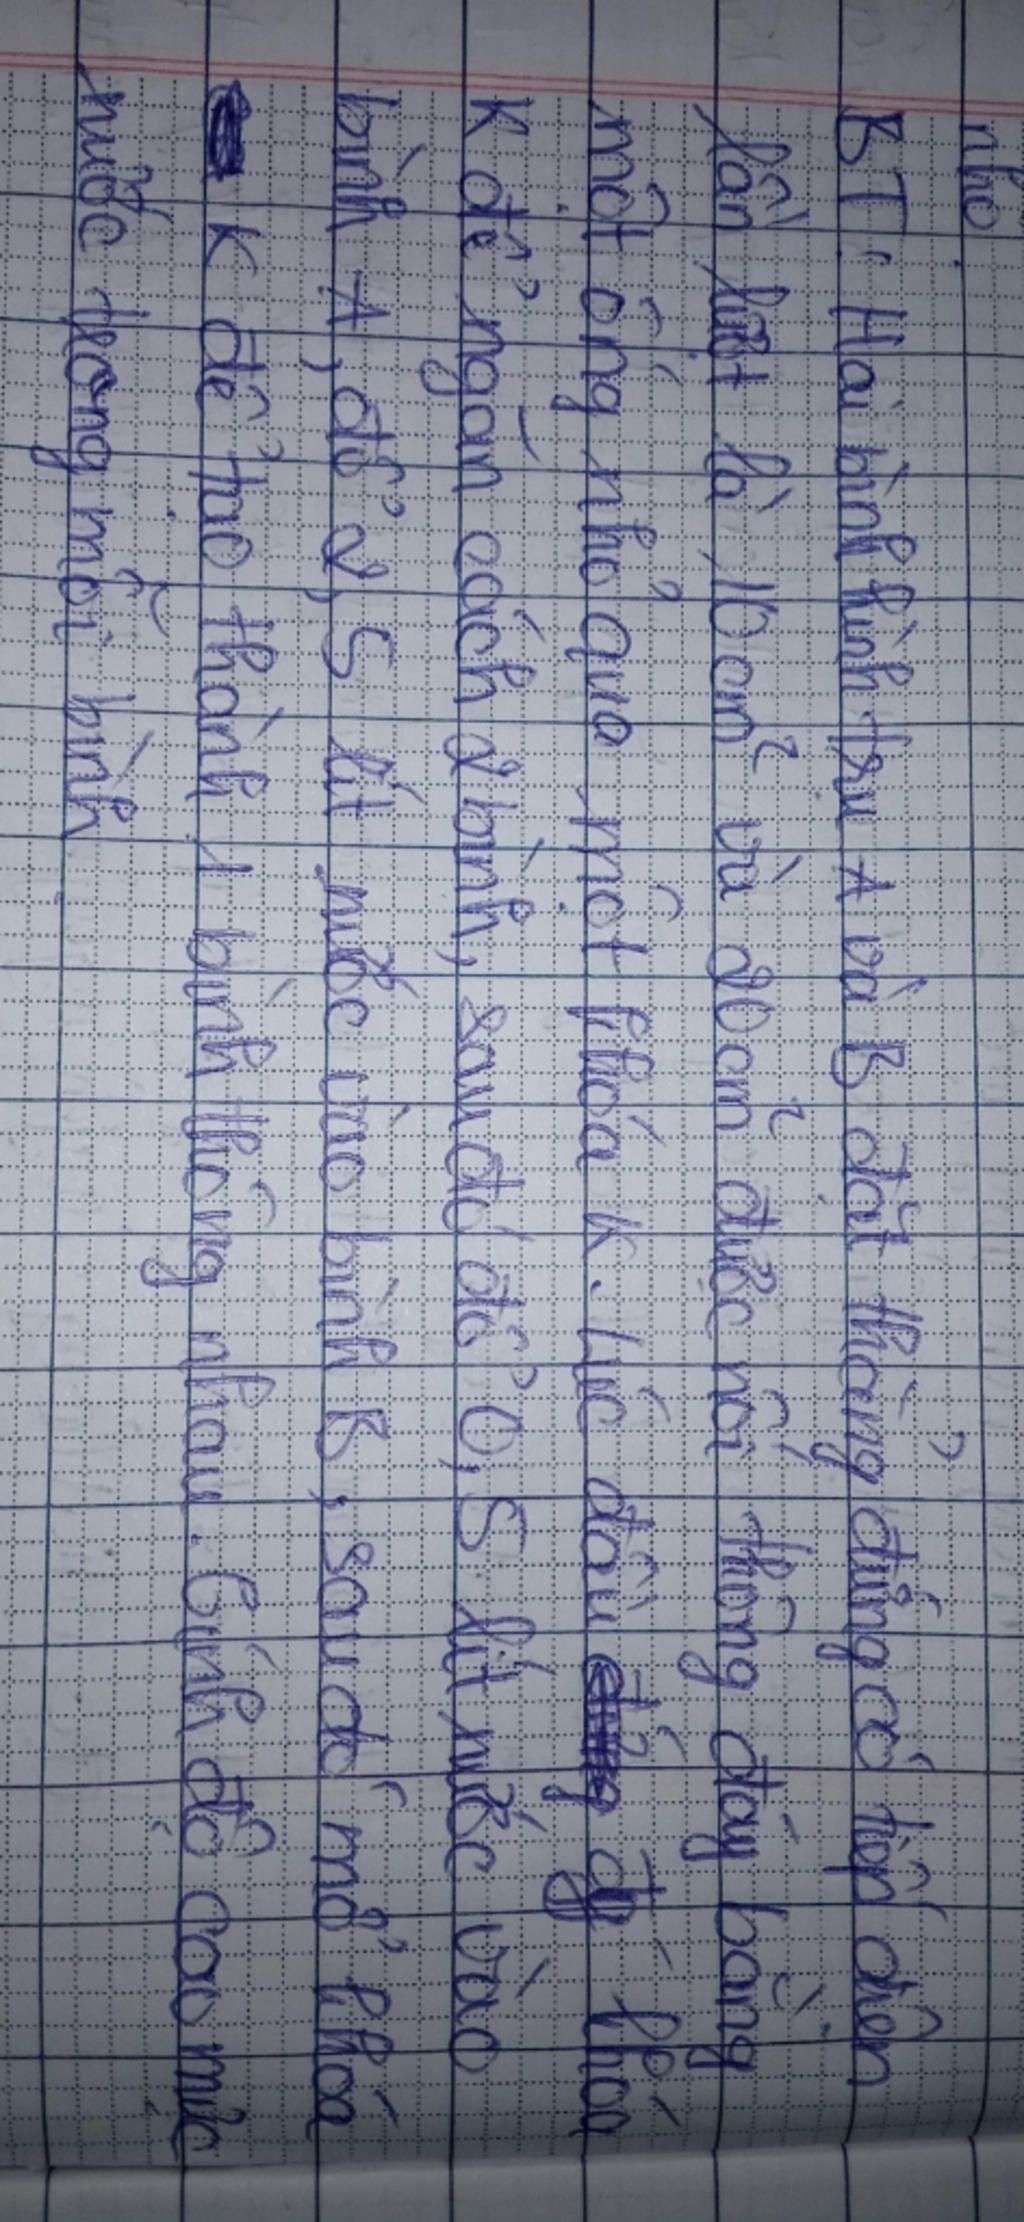 nhỏ.
BT: Hai bình hình trụ A và B đặt thẳng đứng có tiếp diện
lần lượt là 100cm² và 200cm² được nối thông đáy bằng
một ống nhỏ qua một khóa K. Lúc đầu khóa
K để ngăn cách 2 bình, sau đó đổ 0,5 lít nước vào
bình A, đổ 2,5 lít nước vào bình B, sau đó mở khóa
K để tạo thành 1 bình thông nhau. Tính độ cao mực
nước trong mỗi bình